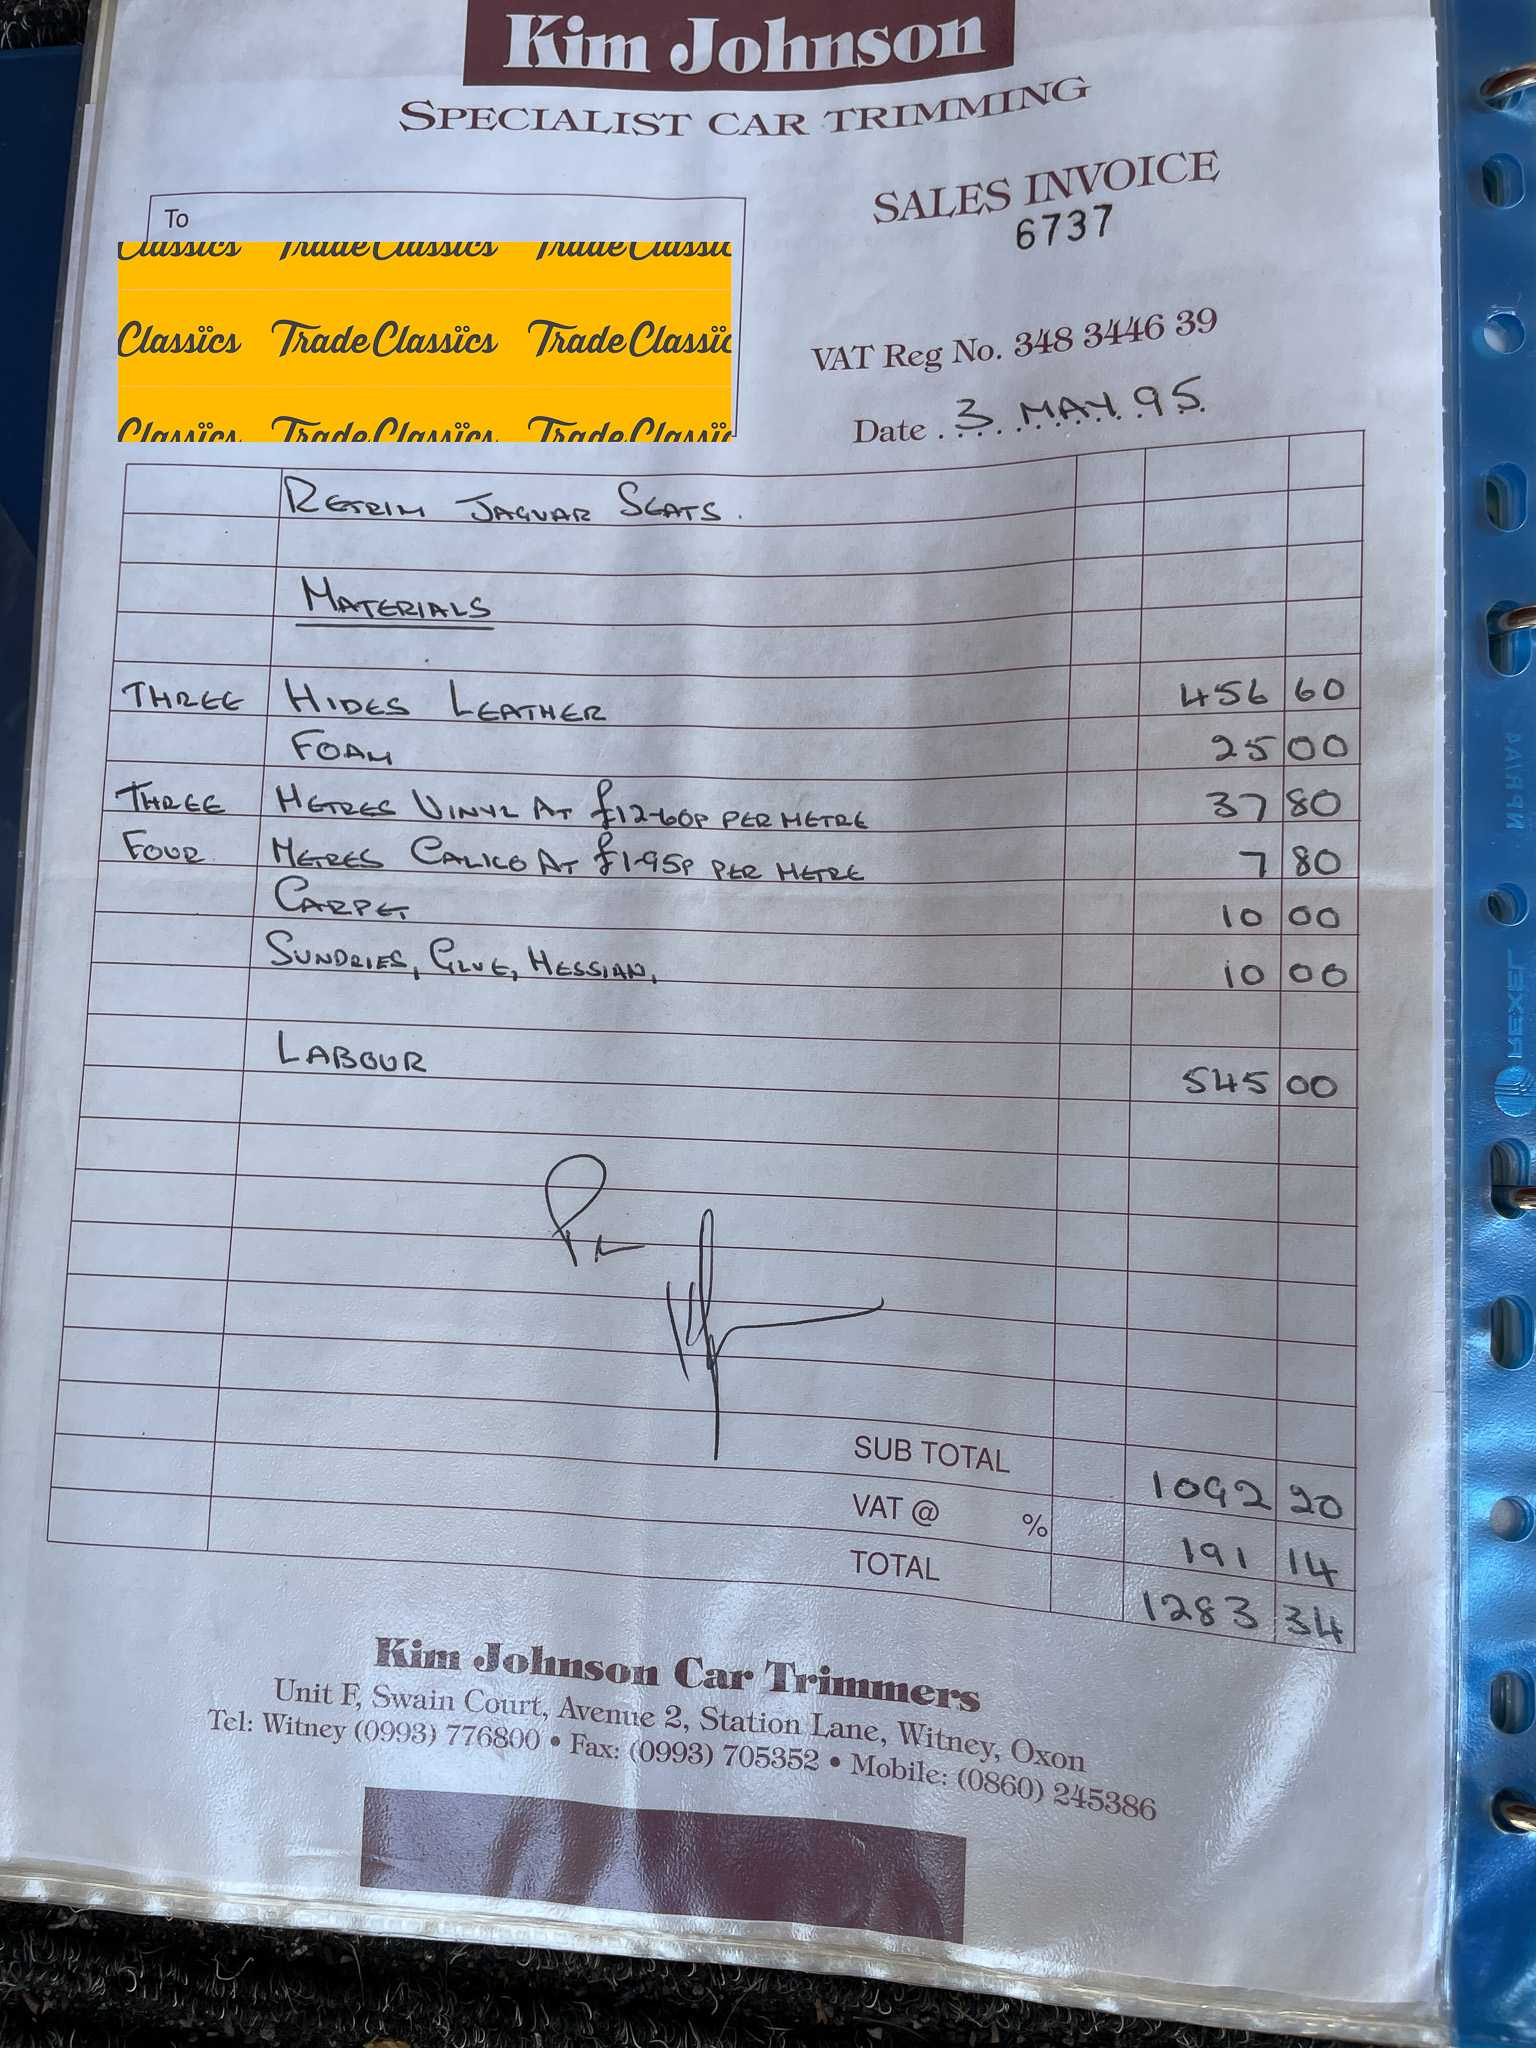 Kim Johnson
SPECIALIST CAR TRIMMING
SALES INVOICE
6737
To
Classics TradeClassics TradeClassic
Classïcs TradeClassïcs TradeClassïc
Classïcs TradeClassïcs TradeClassïc
VAT Reg No. 348 3446 39
Date 3 MAY 95
RETRIM JAGUAR SEATS.
MATERIALS
THREE HIDES LEATHER 456 60
FOAM 25 00
THREE METRES VINYL AT £12-60P PER METRE 37 80
FOUR METRES CALICO AT £1-95P PER METRE 7 80
CARPET 10 00
SUNDRIES, GLUE, HESSIAN, 10 00
LABOUR 545 00
SUB TOTAL 1092 20
VAT @ % 191 14
TOTAL 1283 34
Kim Johnson Car Trimmers
Unit F, Swain Court, Avenue 2, Station Lane, Witney, Oxon
Tel: Witney (0993) 776800 • Fax: (0993) 705352 • Mobile: (0860) 245386
REXEL